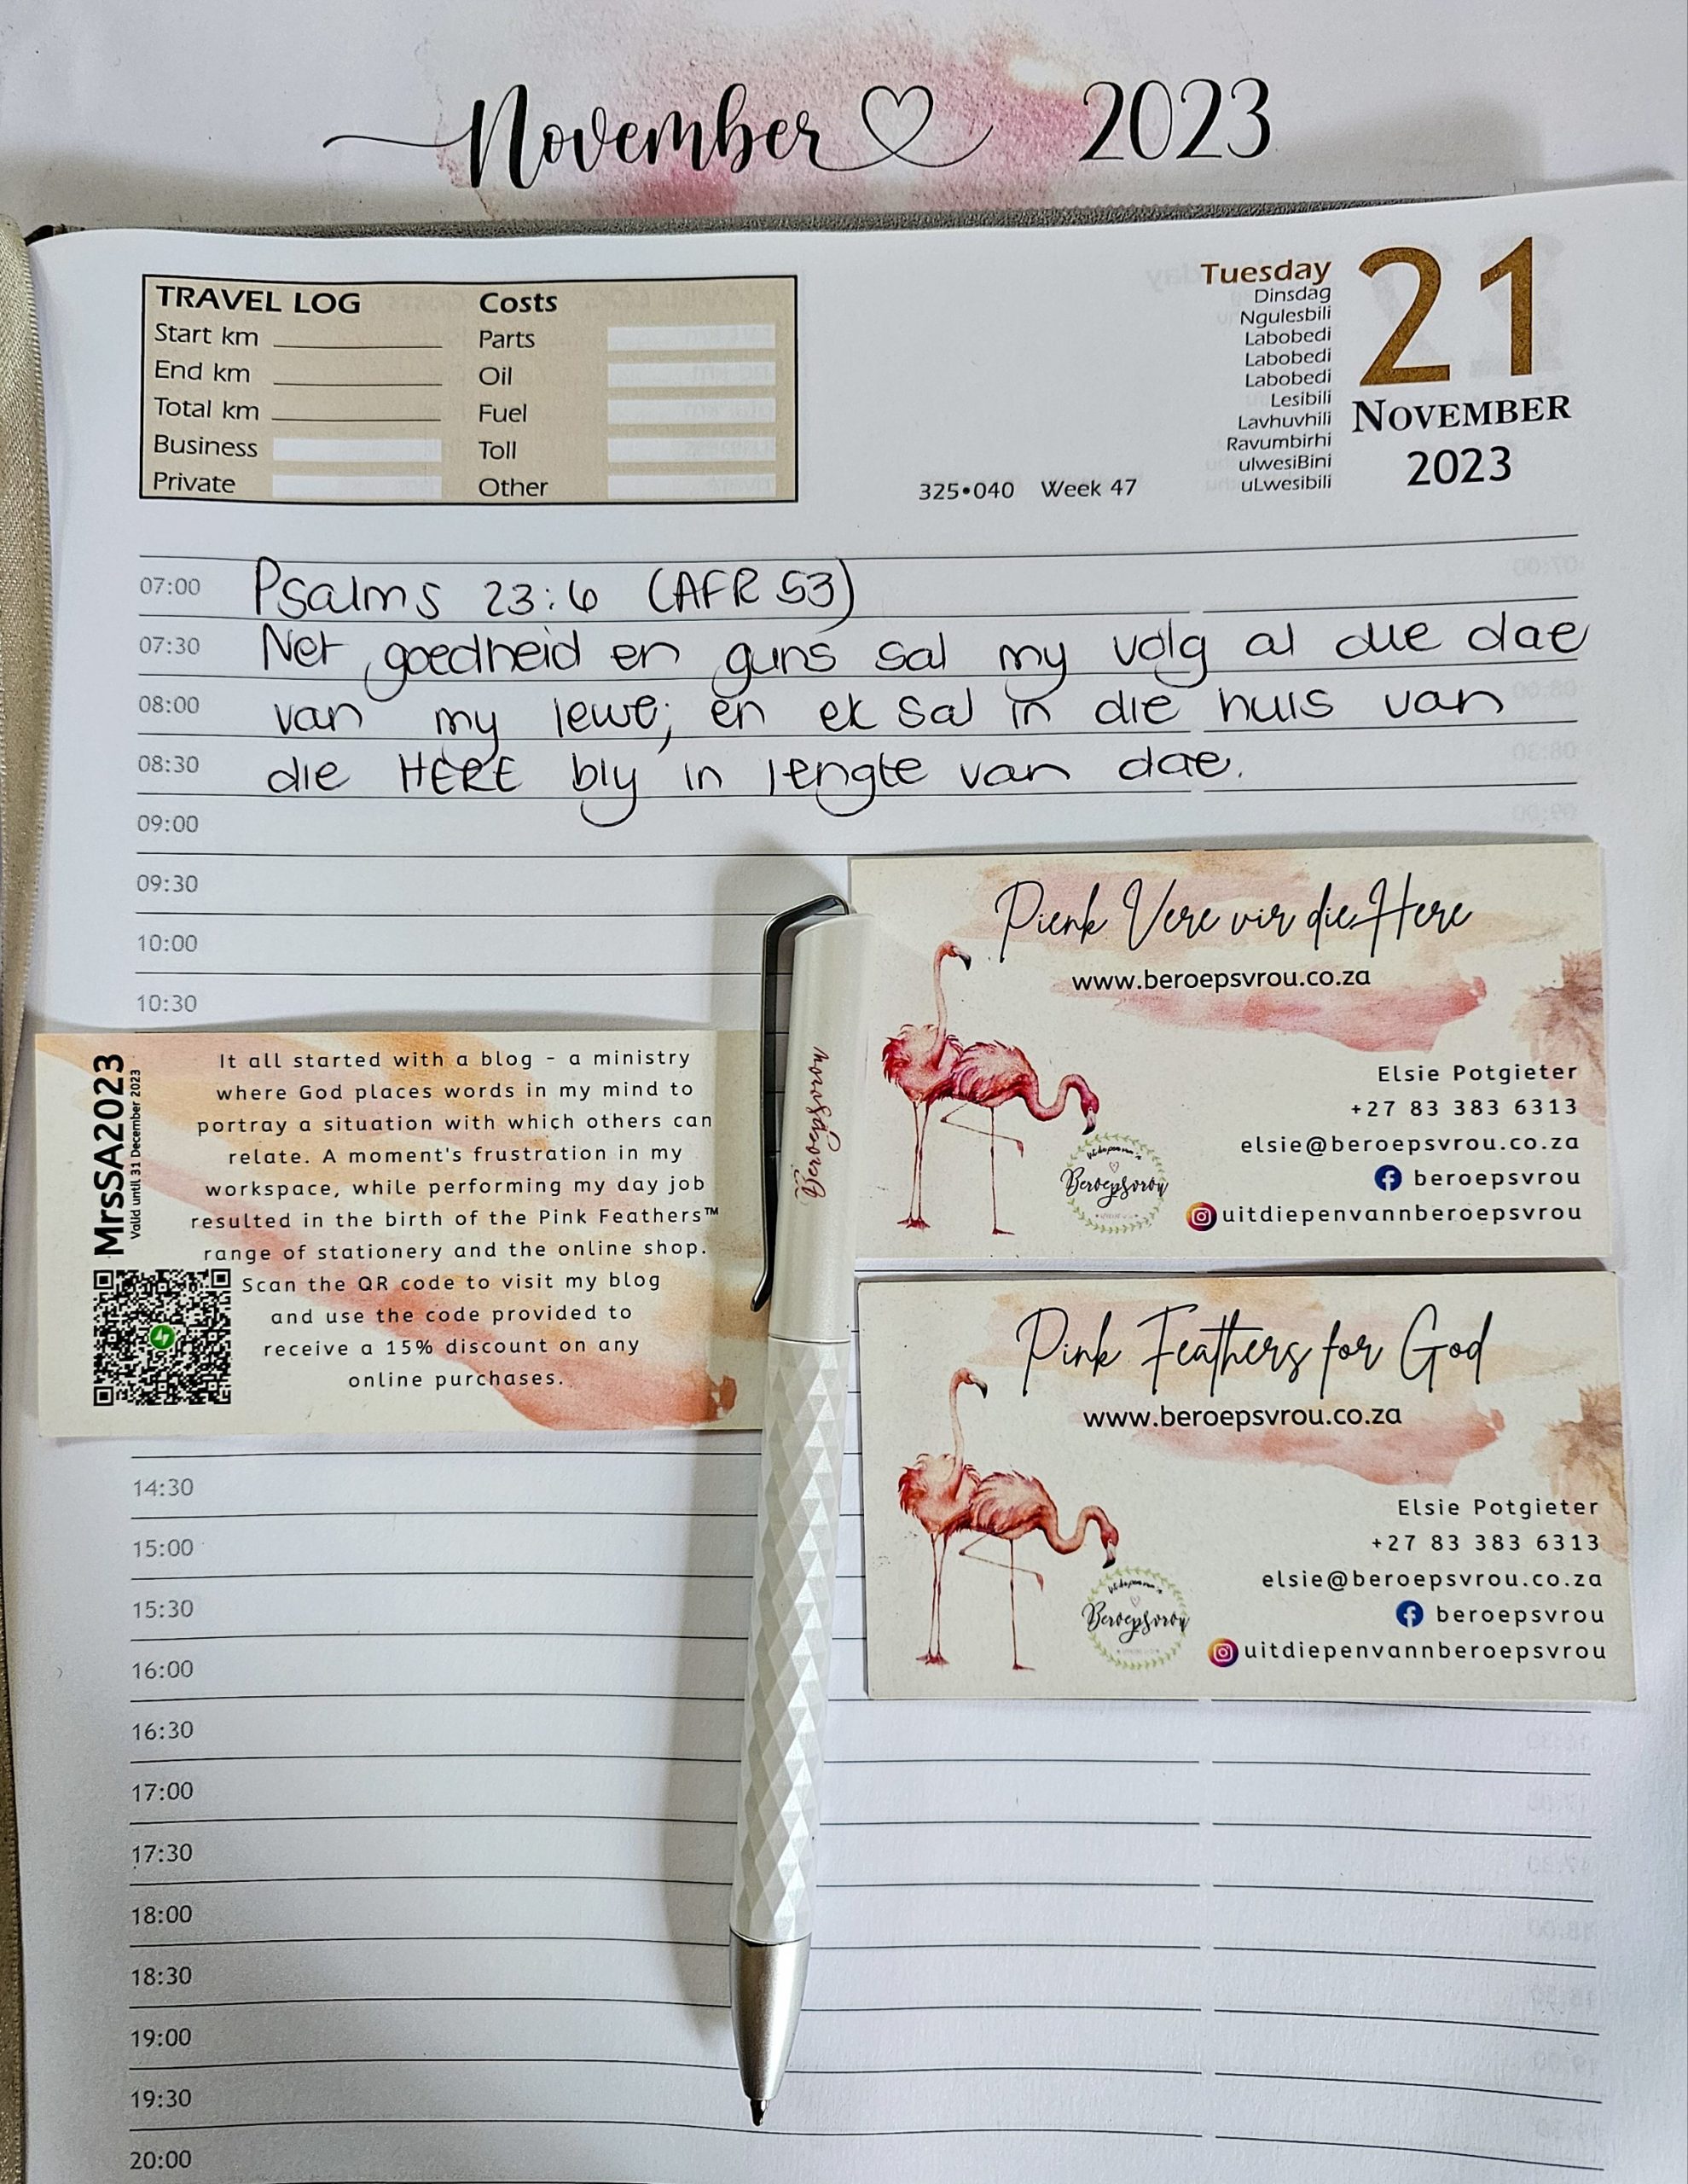 November 2023
TRAVEL LOG Costs
Start km Parts
End km Oil
Total km Fuel
Business Toll
Private Other
325•040 Week 47
Tuesday
Dinsdag
Ngulesbili
Labobedi
Labobedi
Labobedi
Lesibili
Lavhuvhili
Ravumbirhi
ulwesiBini
uLwesibili
21
NOVEMBER
2023
07:00 Psalms 23:6 (AFR 53)
07:30 Net goedheid en guns sal my volg al die dae
08:00 van my lewe; en ek sal in die huis van
08:30 die HERE bly in lengte van dae.
09:00
09:30
10:00
10:30
MrsSA2023
Valid until 31 December 2023
It all started with a blog - a ministry
where God places words in my mind to
portray a situation with which others can
relate. A moment's frustration in my
workspace, while performing my day job
resulted in the birth of the Pink Feathers™
range of stationery and the online shop.
Scan the QR code to visit my blog
and use the code provided to
receive a 15% discount on any
online purchases.
Beroepsvrou
Pienk Vere vir die Here
www.beroepsvrou.co.za
Elsie Potgieter
+27 83 383 6313
elsie@beroepsvrou.co.za
beroepsvrou
uitdiepenvannberoepsvrou
Uit die pen van 'n
Beroepsvrou
Pink Feathers for God
www.beroepsvrou.co.za
Elsie Potgieter
+27 83 383 6313
elsie@beroepsvrou.co.za
beroepsvrou
uitdiepenvannberoepsvrou
Uit die pen van 'n
Beroepsvrou
14:30
15:00
15:30
16:00
16:30
17:00
17:30
18:00
18:30
19:00
19:30
20:00